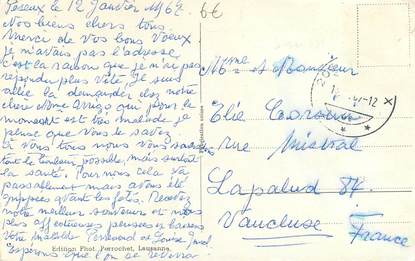 12 Janvier 1967.
Nos biens chers tous.
Merci de vos bons Voeux
je n'avais pas l'adresse,
c'est la raison que je n'ai pas
répondu plus vite. Je suis
allée la demander chez notre
chère Mme qui pour le
moment est très malade je
pense que vous le savez.
A vous tous nous vous
tout le bonheur possible, mais surtout
la santé. Pour nous cela va
passablement mais avons été
grippés avant les fêtés. Recevez
notre meilleur souvenir et nos
plus affectueuses pensées et baisers
Votre
Espérons que l'on se reverra.
6€
Mme & Monsieur
Elie
rue Mistral
Lapalud 84.
Vaucluse
France
Edition Phot. Perrochet, Lausanne.